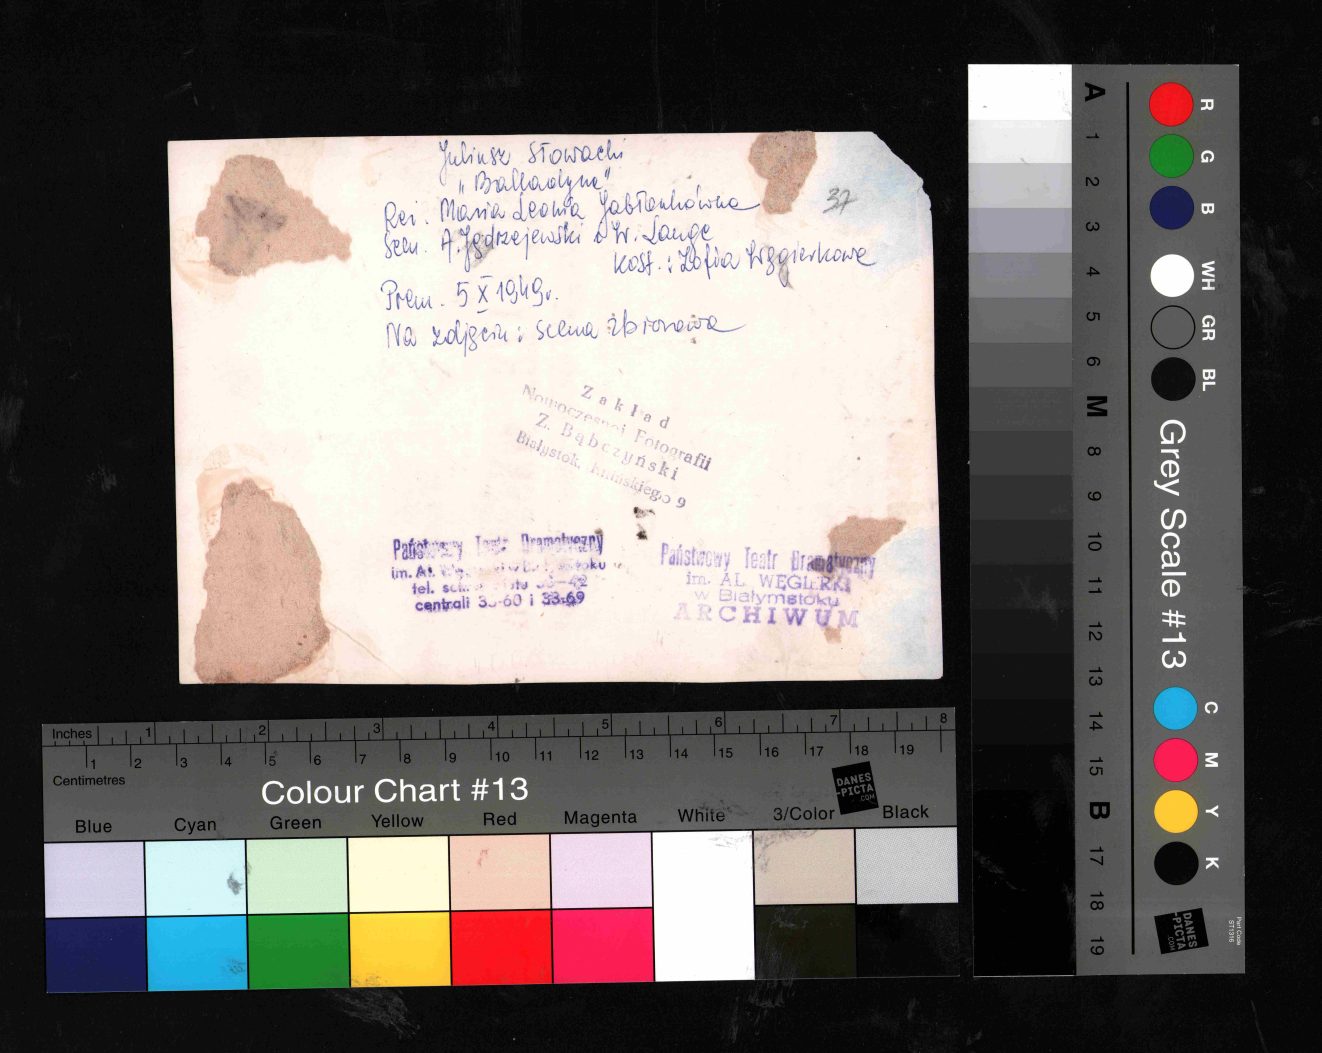 Juliusz Słowacki
"Balladyna"
Reż. Maria Leonia Jabłonkówna
Scen. A. Jędrzejewski i W. Lange
Kost.: Zofia Węgierkowa
Prem. 5 X 1949r.
Na zdjęciu: scena zbiorowa
37
Zakład
Nowoczesnej Fotografii
Z. Bąbczyński
Białystok, 9
Państwowy Teatr Dramatyczny
im. Al.
tel.
centrali 33-60 i 33-69
Państwowy Teatr Dramatyczny
im. AL. WĘGIERKI
w Białymstoku
ARCHIWUM
Inches 1 2 3 4 5 6 7 8
1 2 3 4 5 6 7 8 9 10 11 12 13 14 15 16 17 18 19
Centimetres
Colour Chart #13
DANES
-PICTA
.COM
Blue Cyan Green Yellow Red Magenta White 3/Color Black
A 1 2 3 4 5 6 M 8 9 10 11 12 13 14 15 B 17 18 19
R G B WH GR BL
Grey Scale #13
C M Y K
DANES
-PICTA
.COM
Part Code
ST1316